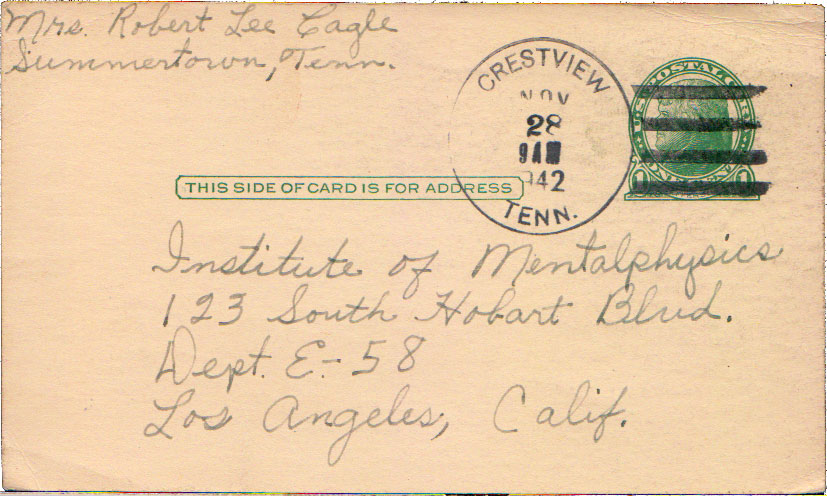 Mrs. Robert Lee Cagle
Summertown, Tenn.
CRESTVIEW
NOV
28
9 AM
1942
TENN.
U.S. POSTAL CARD
THIS SIDE OF CARD IS FOR ADDRESS
Institute of Mentalphysics
123 South Hobart Blvd.
Dept. E-58
Los Angeles, Calif.